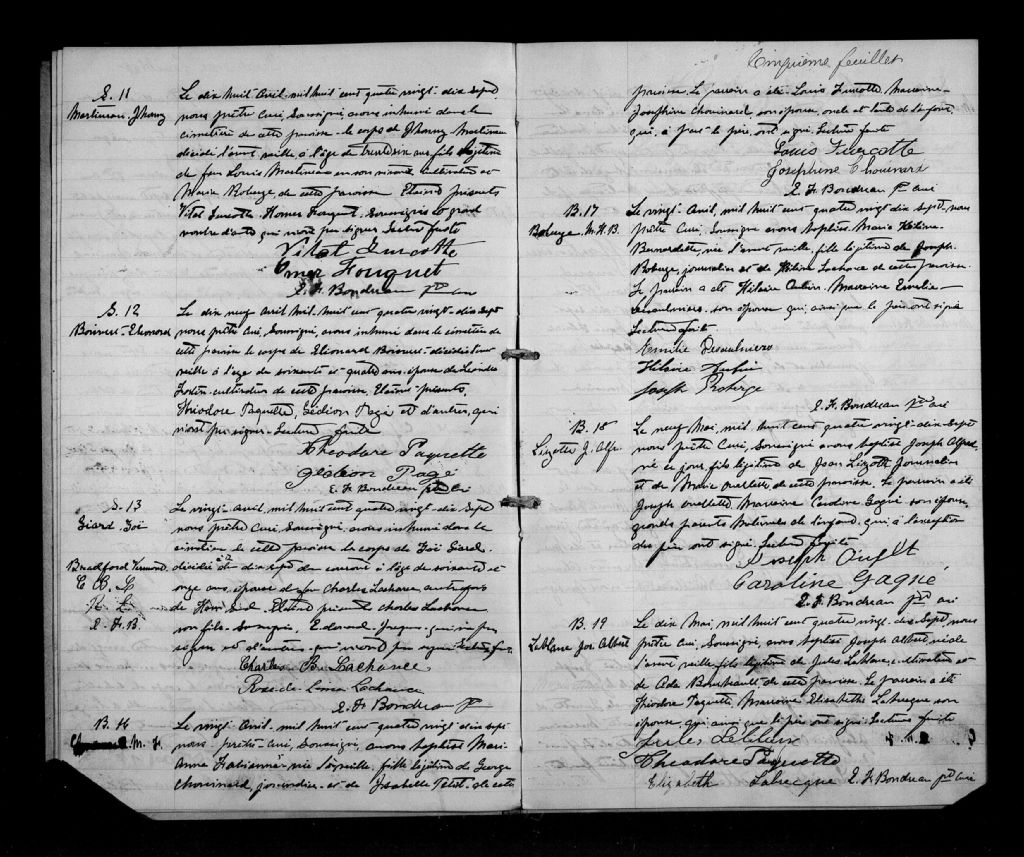 S. 11
Martineau, Jhonny
Le dix huit Avril, mil huit cent quatre vingt-dix sept
nous prêtre Curé, Soussigné, avons inhumé dans le
cimetière de cette paroisse le corps de Jhonny Martineau
décédé l'avant veille à l'âge de ans fils légitime
de feu Louis Martineau en son vivant cultivateur et
Marie Roberge, de cette paroisse. Étaient présents
Vital Turcotte. Homer Fouquet. Soussignés et grand
nombre d'autres qui n'ont pu signer. Lecture faite
Vital Turcotte
Omer Fouquet
E. F. Boudreau Ptre curé
S. 12
Boisvert-Eléonard
Le dix neuf Avril. Mil. huit cent quatre vingt-dix sept
nous prêtre Curé, Soussigné, avons inhumé dans le cimetière de
cette paroisse le corps de Eléonard Boisvert-décédée l'avant
veille à l'âge de soixante et quatre ans. épouse de Léandre
cultivateur de cette paroisse, Étaient-présents,
Théodore Paquette, Gédéon Pagé et d'autres, qui
n'ont pu signer. Lecture faite
Théodore Paquette
Gédéon Pagé
E. F. Boudreau Ptre Curé
S. 13
Giard. Zoé
Le vingt-Avril-mil huit cent quatre vingt-dix sept
nous prêtre Curé, Soussigné, avons inhumé dans le
cimetière de cette paroisse le corps de Zoé Giard.
Bradford Vermond
décédée à le dix sept du courant à l'âge de soixante et
C B. L
onze ans, épouse de feu Charles Lachance autrefois
R. L.
de Étaient présents Charles Lachance
E. F. B
son fils. Soussigné, Edouard Jacques. qui n'a pu
signer et d'autres. qui n'ont pu signer. Lecture faite.
Charles B. Lachance
Rose de Lima Lachance
E. F. Boudreau P
B. 16
M. A.
Le vingt. Avril. mil huit cent quatre vingt dix sept
nous. prêtre. curé, Soussigné, avons baptisé Marie
Anne née la veille, fille légitime de George
Chouinard, journalier et de Isabelle de cette
Cinquième feuillet
paroisse. Le parrain a été Louis Turcotte Marraine-
Joséphine Chouinard, son épouse, oncle et tante de l'enfant
qui, à part le père, ont signé. Lecture faite
Louis Turcotte
Josephine Chouinard
E. F. Boudreau Ptre curé
B. 17
Roberge. M. H. B.
Le vingt-Avril, mil huit cent quatre vingt dix sept, nous
prêtre Curé, Soussigné avons baptisé, Marie Hélène
Bernadette, née l'avant veille, fille légitime de Joseph
Roberge, journalier et de Hélène Lachance de cette paroisse.
Le parrain a été Hilaire Aubin. Marraine Emélie
Desaulniers, son épouse qui, ainsi que le père ont signé
Lecture faite
Emilie Desaulniers
Hilaire Aubin
Joseph Roberge
E. F. Boudreau Ptre curé
B. 18
Lizotte J. Alfr.
Le neuf Mai, mil huit cent quatre vingt-dix sept
nous prêtre Curé, Soussigné avons baptisé Joseph Alfred,
né ce jour, fils légitime de Jean Lizotte Journalier
et de Marie Ouellette de cette paroisse. Le parrain a été
Joseph Ouellette, Marraine Caroline Gagné son épouse
grands parents Maternels de l'enfant. qui à l'exception
du père ont signé. Lecture faite
Joseph
Caroline Gagné,
E. F. Boudreau Ptre curé
B. 19
Leblanc Jos. Albert
Le dix Mai, mil huit cent quatre vingt-dix sept, nous
prêtre Curé, Soussigné, avons baptisé Joseph Albert, né de
l'avant veille, fils légitime de Jules Leblanc, cultivateur et
de Ada Bouchault de cette paroisse. Le parrain a été
Théodore Paquette Marraine Elisabethe Labrecque son
épouse, qui ainsi que le père ont signé. Lecture faite
Jules Leblanc
Théodore Paquette
Elizabeth Labrecque E. F. Boudreau Ptre curé